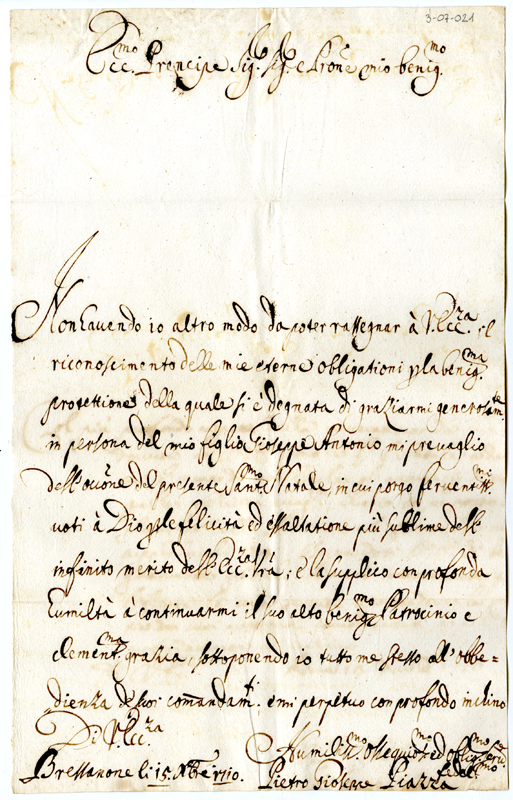 3-07-021
Ecc.mo Prencipe Sig.r Sig.r e Prone mio benig.mo
Non havendo io altro modo da poter rassegnar à V. Ecc.za il
riconoscimento delle mie eterne obligationi p la benig.ma
protettione della quale si è degnata di graziarmi generosam.te
in persona del mio figlio Gioseppe Antonio mi prevaglio
dell'occone del presente Sant.mo Natale, in cui porgo ferventiss.mi
voti à Dio p le felicità ed essaltatione più sublime dell'
infinito merito dell' Ecc.za Vra; e la supplico con profonda
humiltà à continuarmi il suo alto benig.mo Patrocinio e
clement.ma grazia, sottoponendo io tutto me stesso all'obbe=
dienza de suoi comandam.ti e mi perpetuo con profondo inclino
Di V. Ecc.za
Bressanone li 15 Xbre 1710.
Humiliss.mo ossequios.mo ed
Pietro Gioseppe Piazza